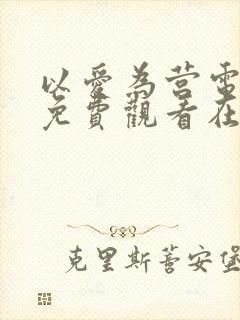 以愛為营電
免費觀看在
克里斯蒈安堡